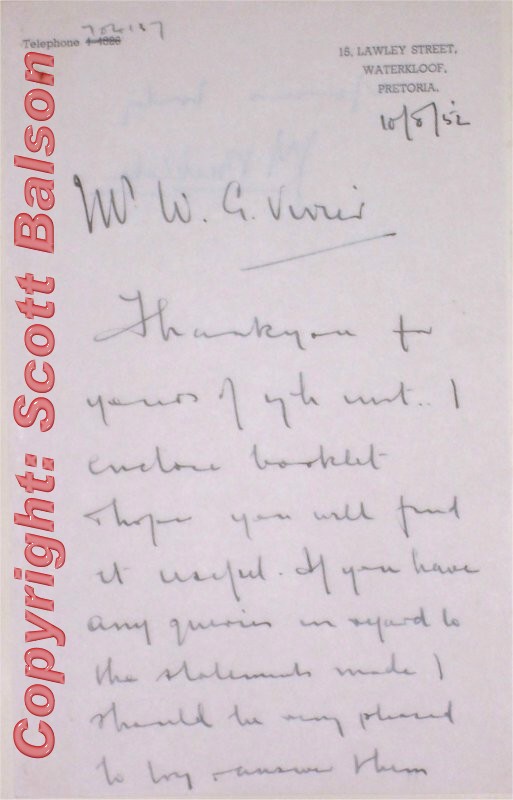 704137
Telephone 4-4326
15, LAWLEY STREET,
WATERKLOOF,
PRETORIA.
10/8/52
Mr W. G. Vivier
Thankyou for
yours of 7th inst.. I
enclose booklet
& hope you will find
it useful. If you have
any queries in regard to
the statements made I
should be very pleased
to try & answer them
Copyright: Scott Balson